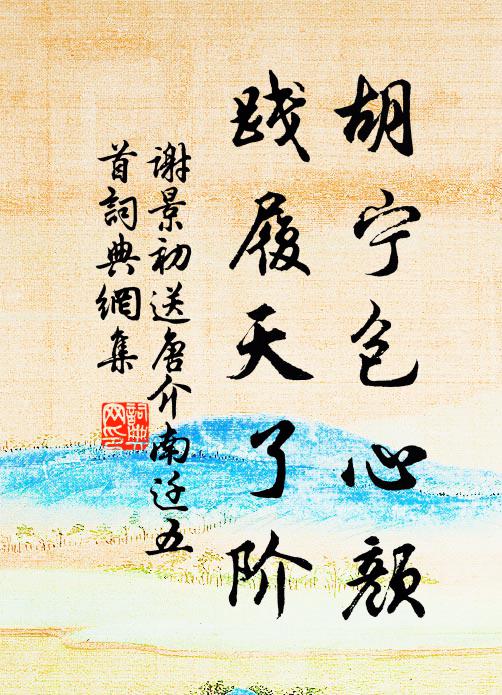 胡宁包心颜
践履天了阶
谢景初送唐介南迁五
首詞典網集
詞典
网印